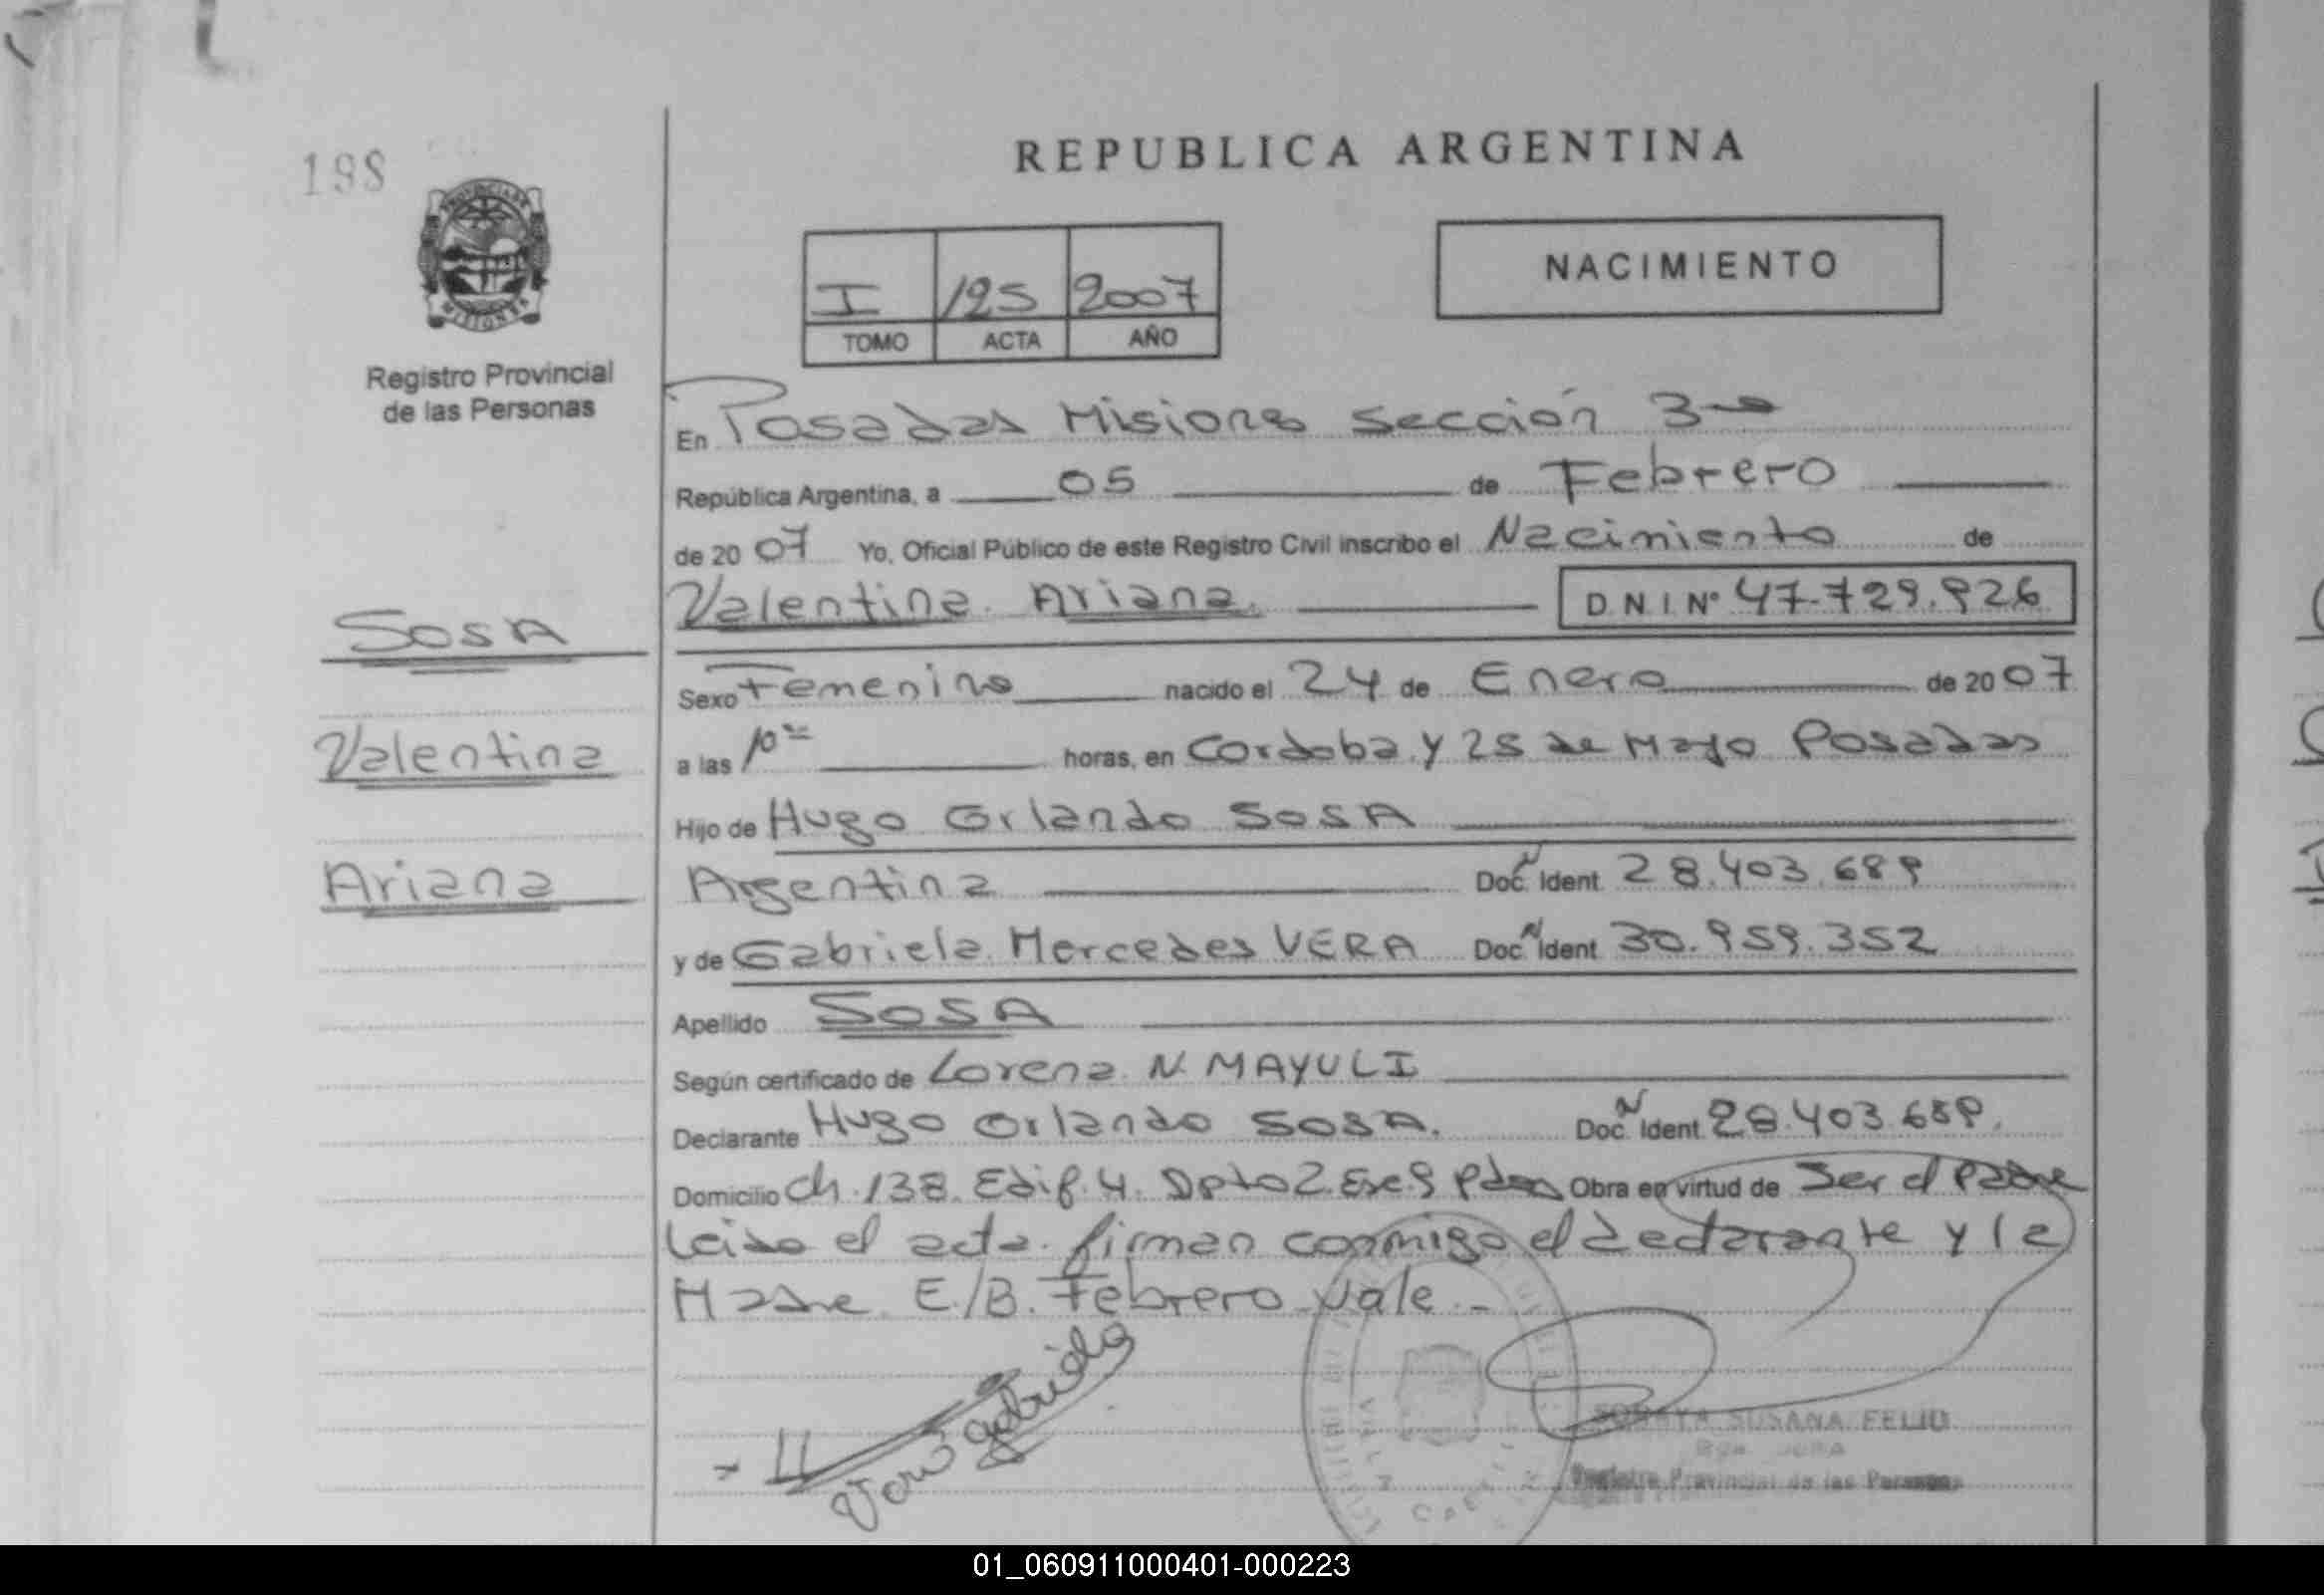 198
REPUBLICA ARGENTINA
NACIMIENTO
I 125 2007
TOMO ACTA AÑO
Registro Provincial
de las Personas
En Posadas Misiones sección 3ª
República Argentina, a 05 de Febrero
de 2007 Yo, Oficial Público de este Registro Civil inscribo el Nacimiento de
Valentina Ariana. D N I Nº 47.729.926
SOSA
Valentina
Ariana
Sexo Femenino nacido el 24 de Enero de 2007
a las 10 horas, en Cordoba y 25 de Mayo Posadas
Hijo de Hugo Orlando SOSA
Argentina Doc. N Ident 28.403.689
y de Gabriela Mercedes VERA Doc. N Ident 30.959.352
Apellido SOSA
Según certificado de Lorena N. MAYULI
Declarante Hugo Orlando SOSA. Doc. N Ident 28.403.689.
Domicilio Ch. 138. Edif. 4. Dpto 2 Esc 9 Pdas Obra en virtud de Ser el Padre
Leido el acta. firman conmigo el declarante y la
Madre. E/B. Febrero Vale.-
Vera Gabriela
SORAYA SUSANA FELIU
Registro Provincial de las Personas
01_060911000401-000223